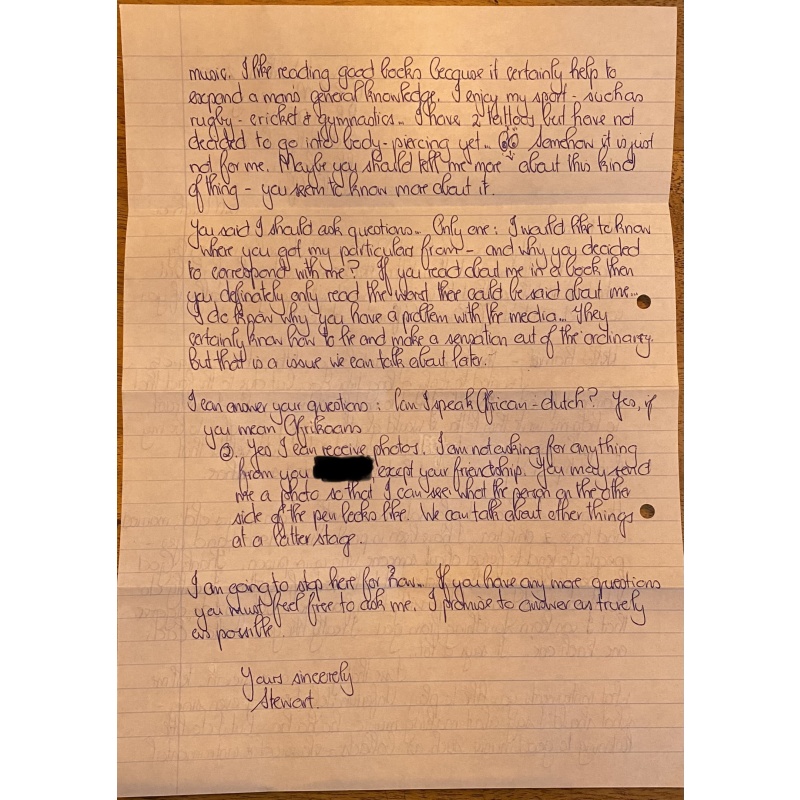 music. I like reading good books because it certainly help to
expand a man's general knowledge. I enjoy my sport - such as
rugby - cricket & gymnastics.. I have 2 tattoos but have not
decided to go into body-piercing yet.. somehow it is just
not for me. Maybe you should tell me more about this kind
of thing - you seem to know more about it.
You said I should ask questions.. Only one: I would like to know
where you got my particulars from - and why you decided
to correspond with me? If you read about me in a book then
you definately only read the worst there could be said about me...
I do know why you have a problem with the media... They
certainly know how to lie and make a sensation out of the ordinary.
But that is a issue we can talk about later.
I can answer your questions: Can I speak African-dutch? Yes, if
you mean Afrikaans
2. Yes I can receive photos. I am not asking for anything
from you except your friendship. You may send
me a photo so that I can see what the person on the other
side of the pen looks like. We can talk about other things
at a latter stage.
I am going to stop here for now.. If you have any more questions
you must feel free to ask me. I promise to answer as truely
as possible.
Yours sincerely
Stewart.